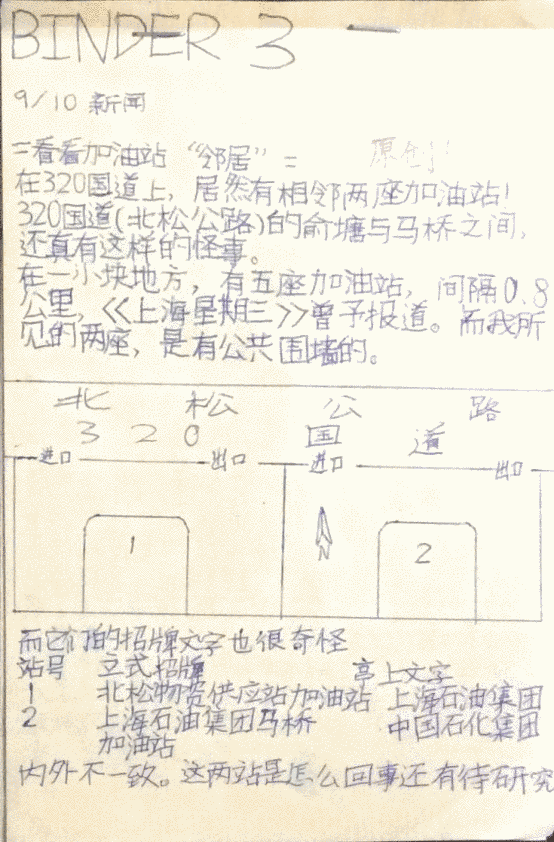 BINDER 3
9/10 新闻
=看看加油站 “邻居”= 原创!!
在320国道上，居然有相邻两座加油站！
320国道(北松公路)的俞塘与马桥之间，
还真有这样的怪事。
在一小块地方，有五座加油站，间隔0.8
公里，《上海星期三》曾予报道。而我所
见的两座，是有公共围墙的。
北 松 公 路
3 2 0 国 道
进口 出口 进口 出口
1 N 2
而它们的招牌文字也很奇怪
站号 立式招牌 亭上文字
1 北松物资供应站加油站 上海石油集团
2 上海石油集团马桥 中国石化集团
加油站
内外不一致。这两站是怎么回事还有待研究